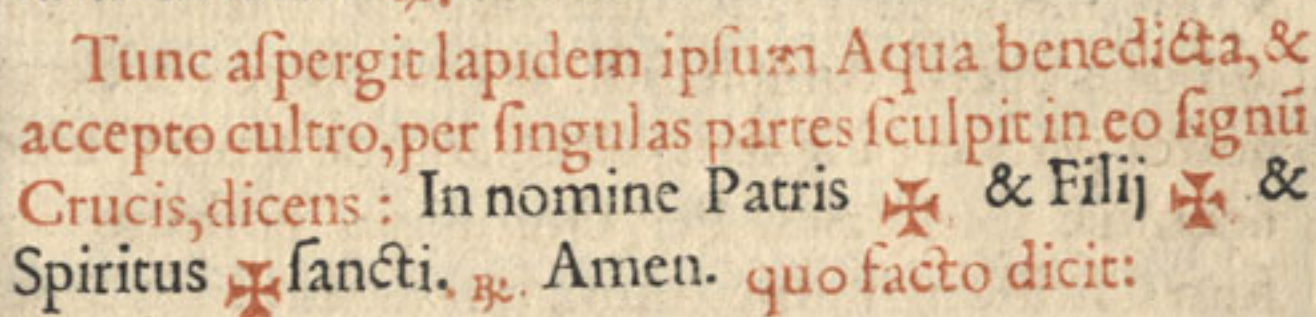 Tunc aſpergit lapidem ipſum Aqua benedicta, &
accepto cultro, per ſingulas partes ſculpit in eo ſignū
Crucis, dicens : In nomine Patris ✠ & Filij ✠ &
Spiritus ✠ ſancti. ℟. Amen. quo facto dicit: